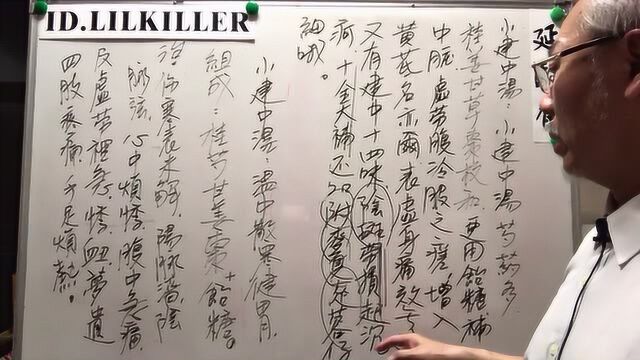 ID.LILKILLER
延
小建中湯：小建中湯芍葯多
桂姜甘草棗枝和 更用飴糖補
中脘 虛勞腹冷服之瘥 增入
黃芪名亦爾 表虛身痛效
又有建中十四味 陰斑勞損起沉
疴 十全大補还加附 麥夏苁蓉仔
細哦。
小建中湯：溫中散寒健胃.
組成：桂芍甘姜棗+飴糖。
治傷寒表未解. 陽脈濇陰
脈弦. 心中煩悸. 腹中急痛
及虛勞裡急. 悸. 衄. 夢遺
四肢疼痛. 手足煩熱。